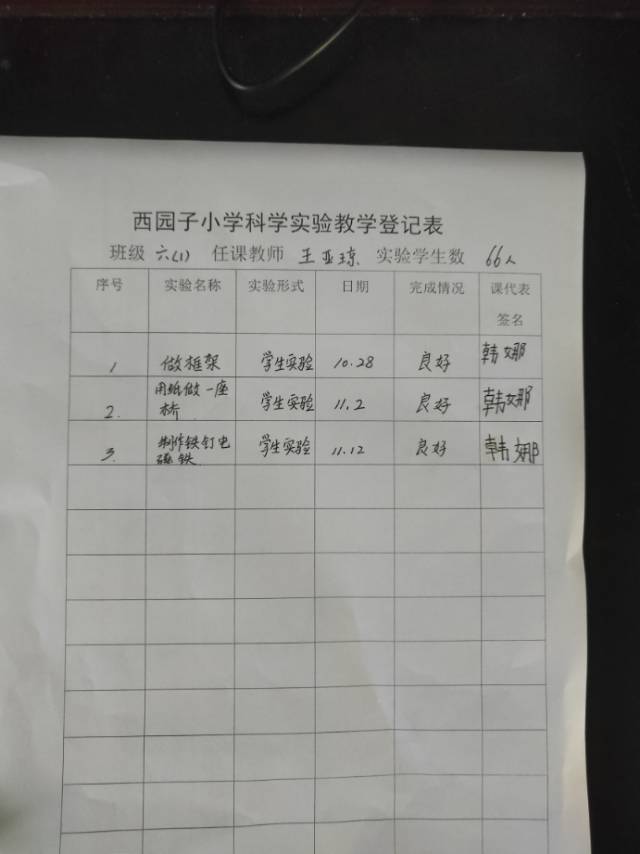 西园子小学科学实验教学登记表
班级 六(1) 任课教师 王亚琼 实验学生数 66人
序号 实验名称 实验形式 日期 完成情况 课代表
签名
1 做框架 学生实验 10.28 良好 韩娜
2. 用纸做一座
桥 学生实验 11.2 良好 韩娜
3. 制作铁钉电
磁铁 学生实验 11.12 良好 韩娜